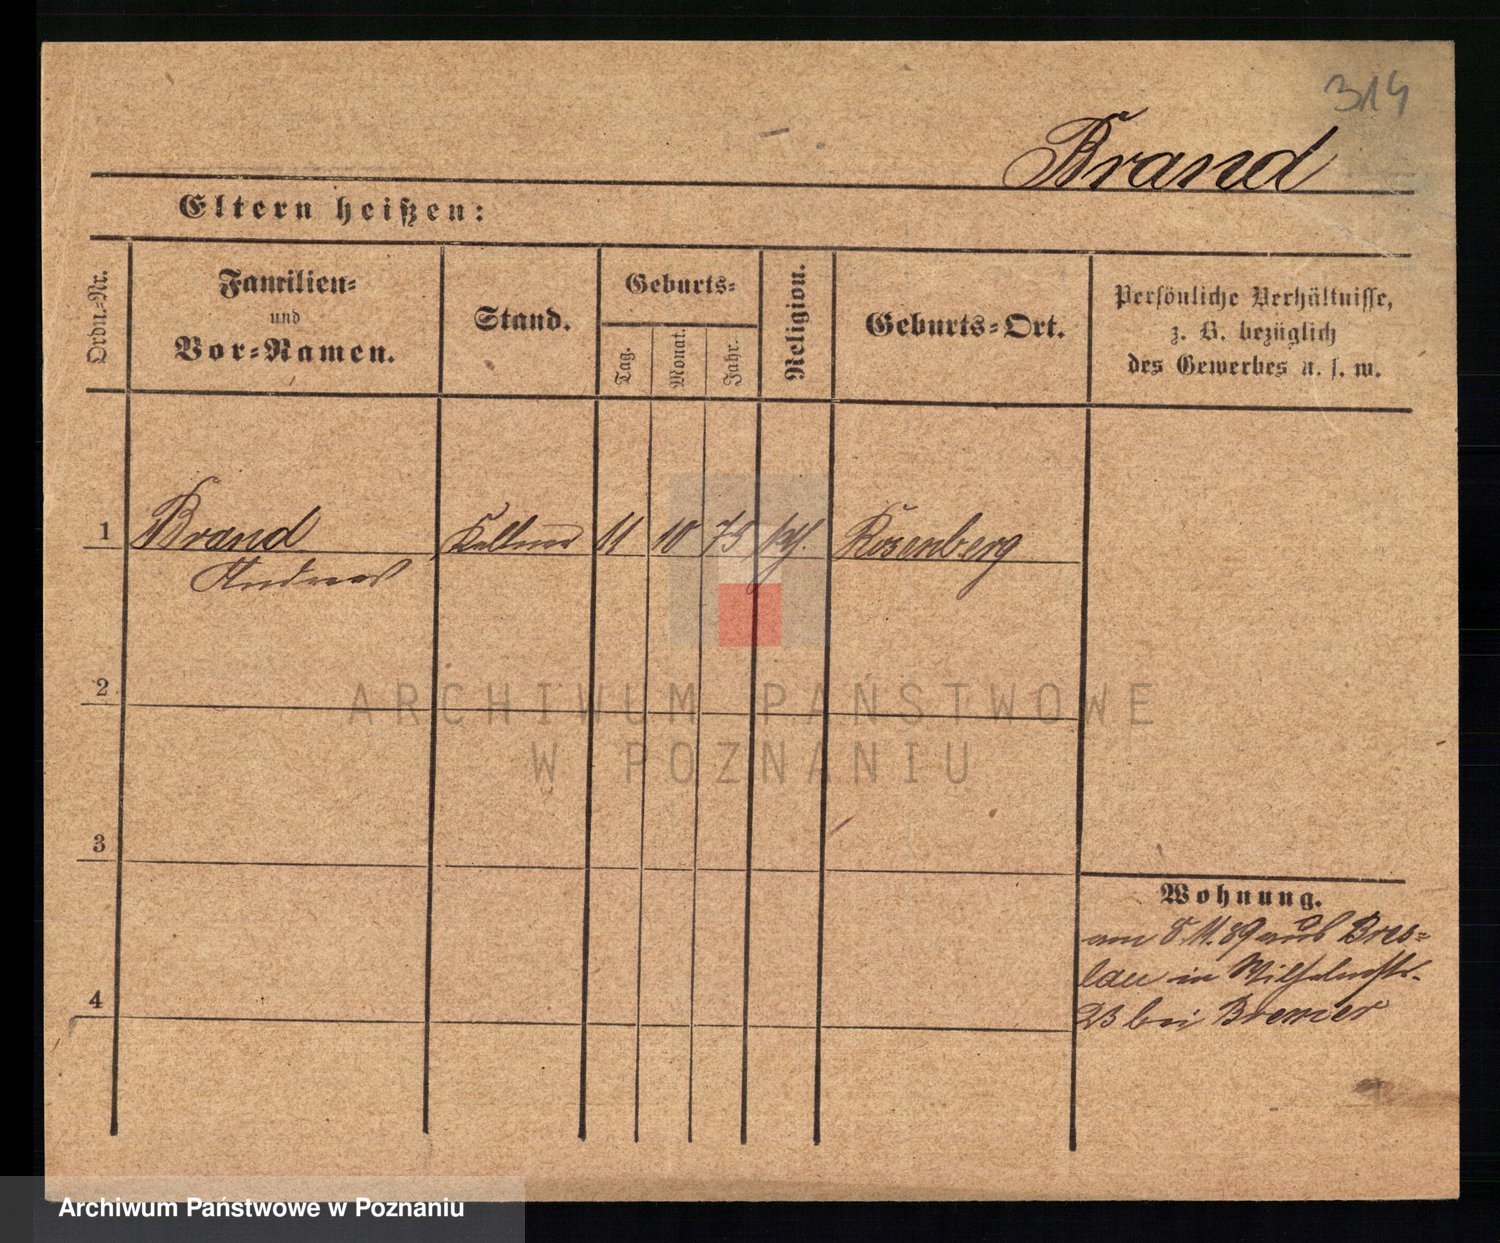 314
Brand
Eltern heißen:
Ordn.-Nr.
Familien-
und
Vor-Namen.
Stand.
Geburts-
Tag.
Monat.
Jahr.
Religion.
Geburts-Ort.
Persönliche Verhältnisse,
z. B. bezüglich
des Gewerbes u. s. w.
1 Brand Kellner 11 10 75 Rosenberg
Andreas
2
ARCHIWUM PAŃSTWOWE
W POZNANIU
3
Wohnung.
am 8.11.89 aus Bres-
lau in Wilhelmstr.
4
23 bei
Archiwum Państwowe w Poznaniu